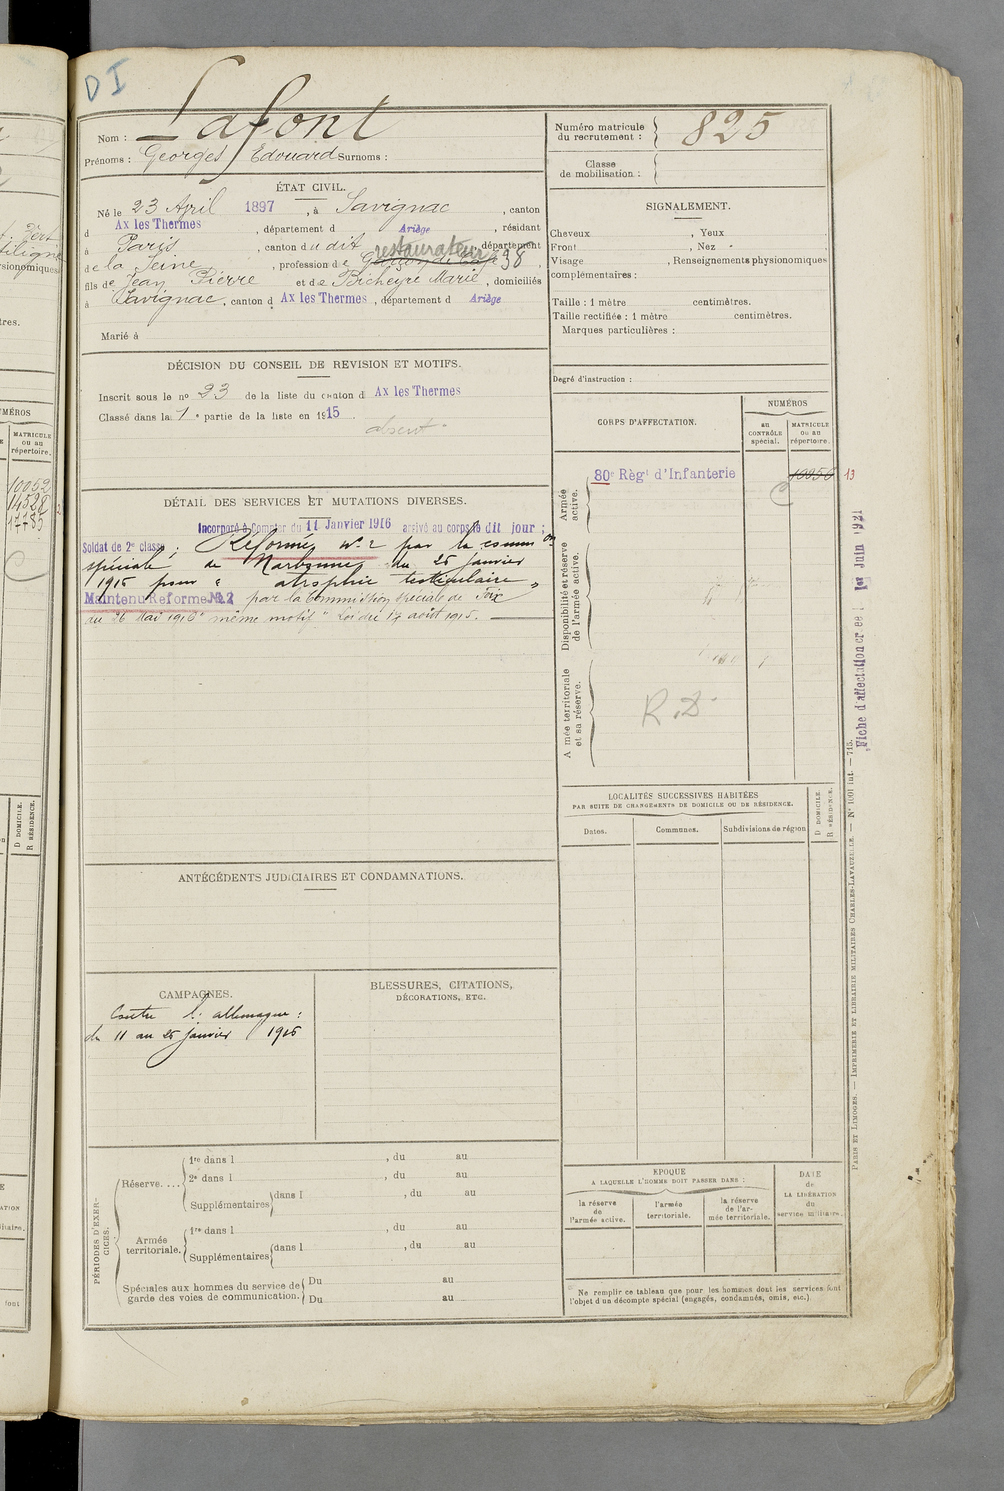 D I
Nom : Lafont
Prénoms : Georges Edouard Surnoms :
Numéro matricule
du recrutement : 825
Classe
de mobilisation :
ÉTAT CIVIL.
Né le 23 April 1897, à Savignac, canton
d Ax les Thermes, département d Ariège, résidant
à Paris, canton du dit, département
restaurateur 98
de la Seine, profession de Garçon de Café
fils de Jean Pierre et de Bicheyre Marie, domiciliés
à Savignac, canton d Ax les Thermes, département d Ariège
Marié à
SIGNALEMENT.
Cheveux , Yeux
Front , Nez
Visage , Renseignements physionomiques
complémentaires :
Taille : 1 mètre centimètres.
Taille rectifiée : 1 mètre centimètres.
Marques particulières :
Degré d'instruction :
DÉCISION DU CONSEIL DE REVISION ET MOTIFS.
Inscrit sous le no 23 de la liste du canton d Ax les Thermes
Classé dans la 1e partie de la liste en 1915
absent
DÉTAIL DES SERVICES ET MUTATIONS DIVERSES.
Incorporé à Compter du 11 Janvier 1916 arrivé au corps le dit jour ;
Soldat de 2e classe ; Réformé no 2 par la commion
spéciale de Narbonne du 25 janvier
1916 pour " atrophie testiculaire "
Maintenu Réformé No 2 par la Commission Spéciale de Foix
du 26 Mai 1916 " même motif " Loi du 17 août 1915.
CORPS D'AFFECTATION.
NUMÉROS
au
CONTRÔLE
spécial.
MATRICULE
ou au
répertoire.
Armée
active.
80e Règt d'Infanterie
10956 13
Disponibilité et réserve
de l'armée active.
Armée territoriale
et sa réserve.
R.D.
Fiche d'affectation créée le 1er Juin 1921
LOCALITÉS SUCCESSIVES HABITÉES
PAR SUITE DE CHANGEMENTS DE DOMICILE OU DE RÉSIDENCE.
Dates.
Communes.
Subdivisions de région
D DOMICILE.
R RÉSIDENCE.
ANTÉCÉDENTS JUDICIAIRES ET CONDAMNATIONS.
CAMPAGNES.
Contre l'allemagne :
du 11 au 25 janvier 1916
BLESSURES, CITATIONS,
DÉCORATIONS, ETC.
PÉRIODES D'EXER-
CICES.
Réserve....
1re dans l , du au
2e dans l , du au
Supplémentaires dans l , du au
Armée
territoriale.
1re dans l , du au
Supplémentaires dans l , du au
Spéciales aux hommes du service de
garde des voies de communication.
Du au
Du au
EPOQUE
A LAQUELLE L'HOMME DOIT PASSER DANS :
la réserve
de
l'armée active.
l'armée
territoriale.
la réserve
de l'ar-
mée territoriale.
DATE
de
LA LIBÉRATION
du
service militaire.
Ne remplir ce tableau que pour les hommes dont les services font
l'objet d'un décompte spécial (engagés, condamnés, omis, etc.).
PARIS ET LIMOGES. — IMPRIMERIE ET LIBRAIRIE MILITAIRES CHARLES-LAVAUZELLE. — No 1001 int. — 715.
MATRICULE
ou au
répertoire.
10052
14528
D DOMICILE.
R RÉSIDENCE.